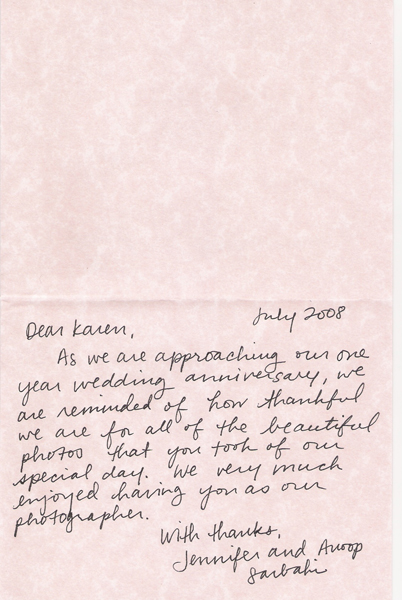 July 2008
Dear Karen,
As we are approaching our one
year wedding anniversary, we
are reminded of how thankful
we are for all of the beautiful
photos that you took of our
special day. We very much
enjoyed having you as our
photographer.
With thanks,
Jennifer and Anoop
Sarbahi